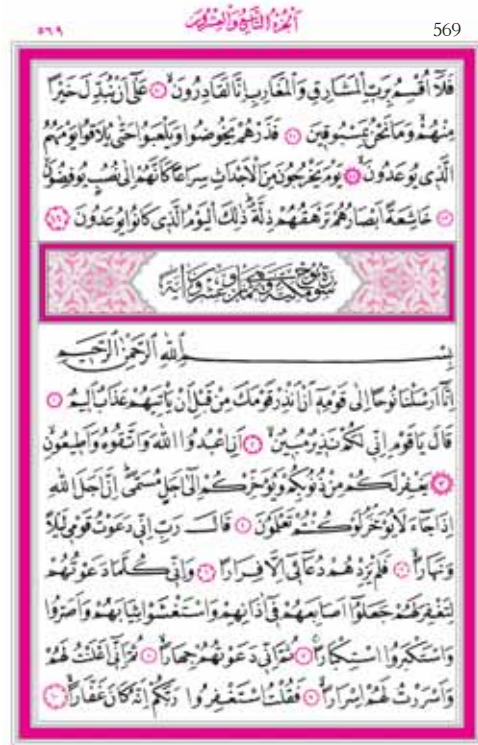 الجزء التاسع والعشرون
٥٦٩
569
فَلَا أُقْسِمُ بِرَبِّ الْمَشَارِقِ وَالْمَغَارِبِ إِنَّا لَقَادِرُونَ ﴿٤٠﴾ عَلَى أَنْ نُبَدِّلَ خَيْرًا
مِنْهُمْ وَمَا نَحْنُ بِمَسْبُوقِينَ ﴿٤١﴾ فَذَرْهُمْ يَخُوضُوا وَيَلْعَبُوا حَتَّى يُلَاقُوا يَوْمَهُمُ
الَّذِي يُوعَدُونَ ﴿٤٢﴾ يَوْمَ يَخْرُجُونَ مِنَ الْأَجْدَاثِ سِرَاعًا كَأَنَّهُمْ إِلَى نُصُبٍ يُوفِضُونَ
﴿٤٣﴾ خَاشِعَةً أَبْصَارُهُمْ تَرْهَقُهُمْ ذِلَّةٌ ذَلِكَ الْيَوْمُ الَّذِي كَانُوا يُوعَدُونَ ﴿٤٤﴾
سورة نوح مكية وهي ثمان وعشرون آية
بِسْمِ اللَّهِ الرَّحْمَنِ الرَّحِيمِ
إِنَّا أَرْسَلْنَا نُوحًا إِلَى قَوْمِهِ أَنْ أَنْذِرْ قَوْمَكَ مِنْ قَبْلِ أَنْ يَأْتِيَهُمْ عَذَابٌ أَلِيمٌ ﴿١﴾
قَالَ يَا قَوْمِ إِنِّي لَكُمْ نَذِيرٌ مُبِينٌ ﴿٢﴾ أَنِ اعْبُدُوا اللَّهَ وَاتَّقُوهُ وَأَطِيعُونِ
﴿٣﴾ يَغْفِرْ لَكُمْ مِنْ ذُنُوبِكُمْ وَيُؤَخِّرْكُمْ إِلَى أَجَلٍ مُسَمًّى إِنَّ أَجَلَ اللَّهِ
إِذَا جَاءَ لَا يُؤَخَّرُ لَوْ كُنْتُمْ تَعْلَمُونَ ﴿٤﴾ قَالَ رَبِّ إِنِّي دَعَوْتُ قَوْمِي لَيْلًا
وَنَهَارًا ﴿٥﴾ فَلَمْ يَزِدْهُمْ دُعَائِي إِلَّا فِرَارًا ﴿٦﴾ وَإِنِّي كُلَّمَا دَعَوْتُهُمْ
لِتَغْفِرَ لَهُمْ جَعَلُوا أَصَابِعَهُمْ فِي آذَانِهِمْ وَاسْتَغْشَوْا ثِيَابَهُمْ وَأَصَرُّوا
وَاسْتَكْبَرُوا اسْتِكْبَارًا ﴿٧﴾ ثُمَّ إِنِّي دَعَوْتُهُمْ جِهَارًا ﴿٨﴾ ثُمَّ إِنِّي أَعْلَنْتُ لَهُمْ
وَأَسْرَرْتُ لَهُمْ إِسْرَارًا ﴿٩﴾ فَقُلْتُ اسْتَغْفِرُوا رَبَّكُمْ إِنَّهُ كَانَ غَفَّارًا ﴿١٠﴾